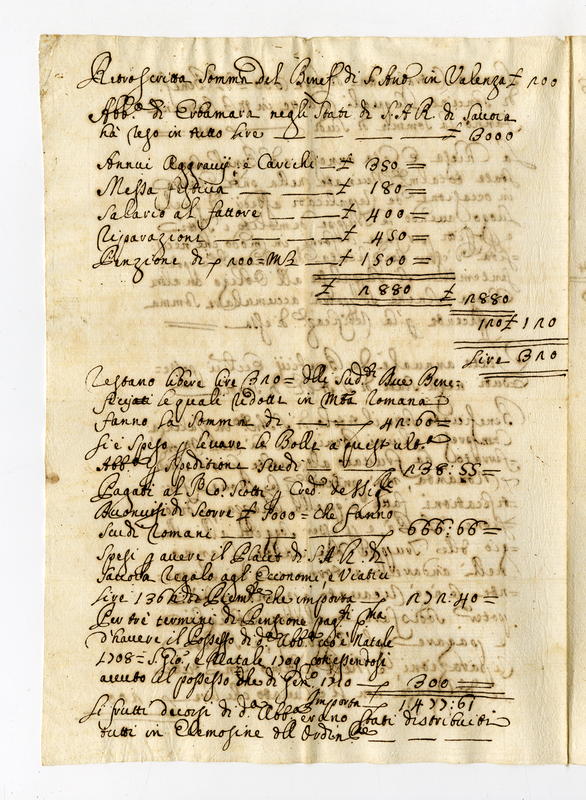 Retroscritta Somma del Benef.º di S. Ant.º in Valenza £ 200
Abb.ª di Erbamara negli Stati di S. A. R. di Savoia
hà reso in tutto lire — — — £ 3000
Annui Aggravij, e Carichi — £ 350 =
Messa festiva — — £ 180 =
Salario al fattore — — £ 400 =
Riparazione — — — £ 450 =
Penzione di 200 = — £ 1500 =
£ 2880 £ 2880
120 £ 120
Lire 320
Restano libere lire 320 = delli Sud.ti Due Bene=
ficiati le quali ridotte in Mta Romana
fanno la Somma di — — 42:60 =
Si è speso p levare le Bolle
Abb.ª p Spedizione Scudi — — 238:55 =
Pagati al Co: Scotti p Cred.
Buonvisi di £ 7000 = che fanno
Scudi Romani — — 666:66 =
Spesi p avere il Placet di S. A. R. di
Savoia Regalo agl'Economi, e Viatici
Lire di Piem.te che importa 272:40 =
Per trè termini di Pensione pag.ti p̄ma
d'havere il Possesso di d.ª Abb.ª cioè Natale
1708 = S. Gio:, e Natale 1709 non essendosi
avuto il possesso che di Gen.º 1710 — 300 =
Importa 1477:61
Li frutti decorsi di d.ª Abb.ª erano stati distribuiti
tutti in Elemosine